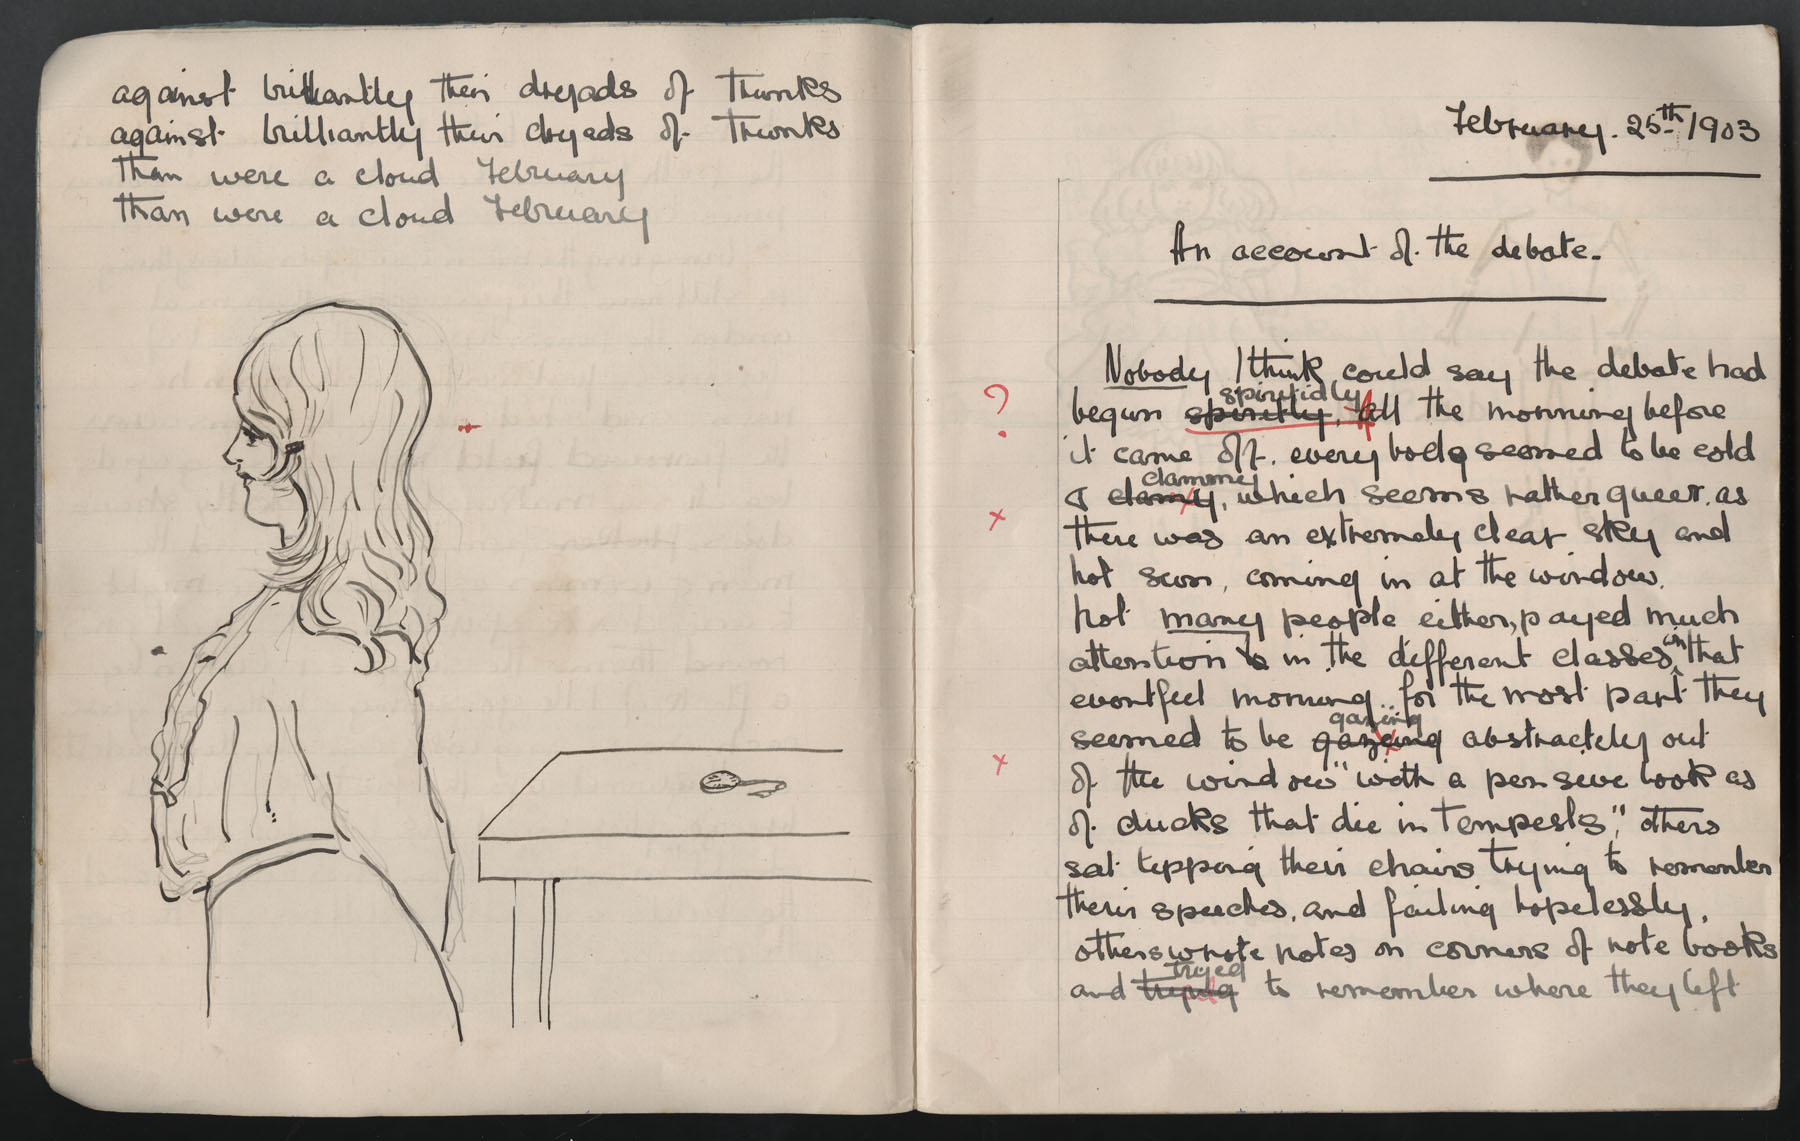 against brilliantly their dryads of Thunks
against brilliantly their dryads of Trunks
Than were a cloud February
than were a cloud February
February. 25th 1903
An account of the debate.
Nobody I think could say the debate had
spiritidly
begun spiritly, All the morning before
it came off. every body seemed to be cold
clammy
& clamy, which seems rather queer. as
there was an extremely clear sky and
hot sun, coming in at the window.
not many people either, payed much
attention in the different classes on that
eventfeel morning.. for the most part they
gazing
seemed to be gazeing abstractely out
of the window "with a pensive look as
of ducks that die in Tempests," others
sat tipping their chairs trying to remember
their speeches, and failing hopelessly,
others wrote notes on corners of note books
tryed
and trying to remember where they left